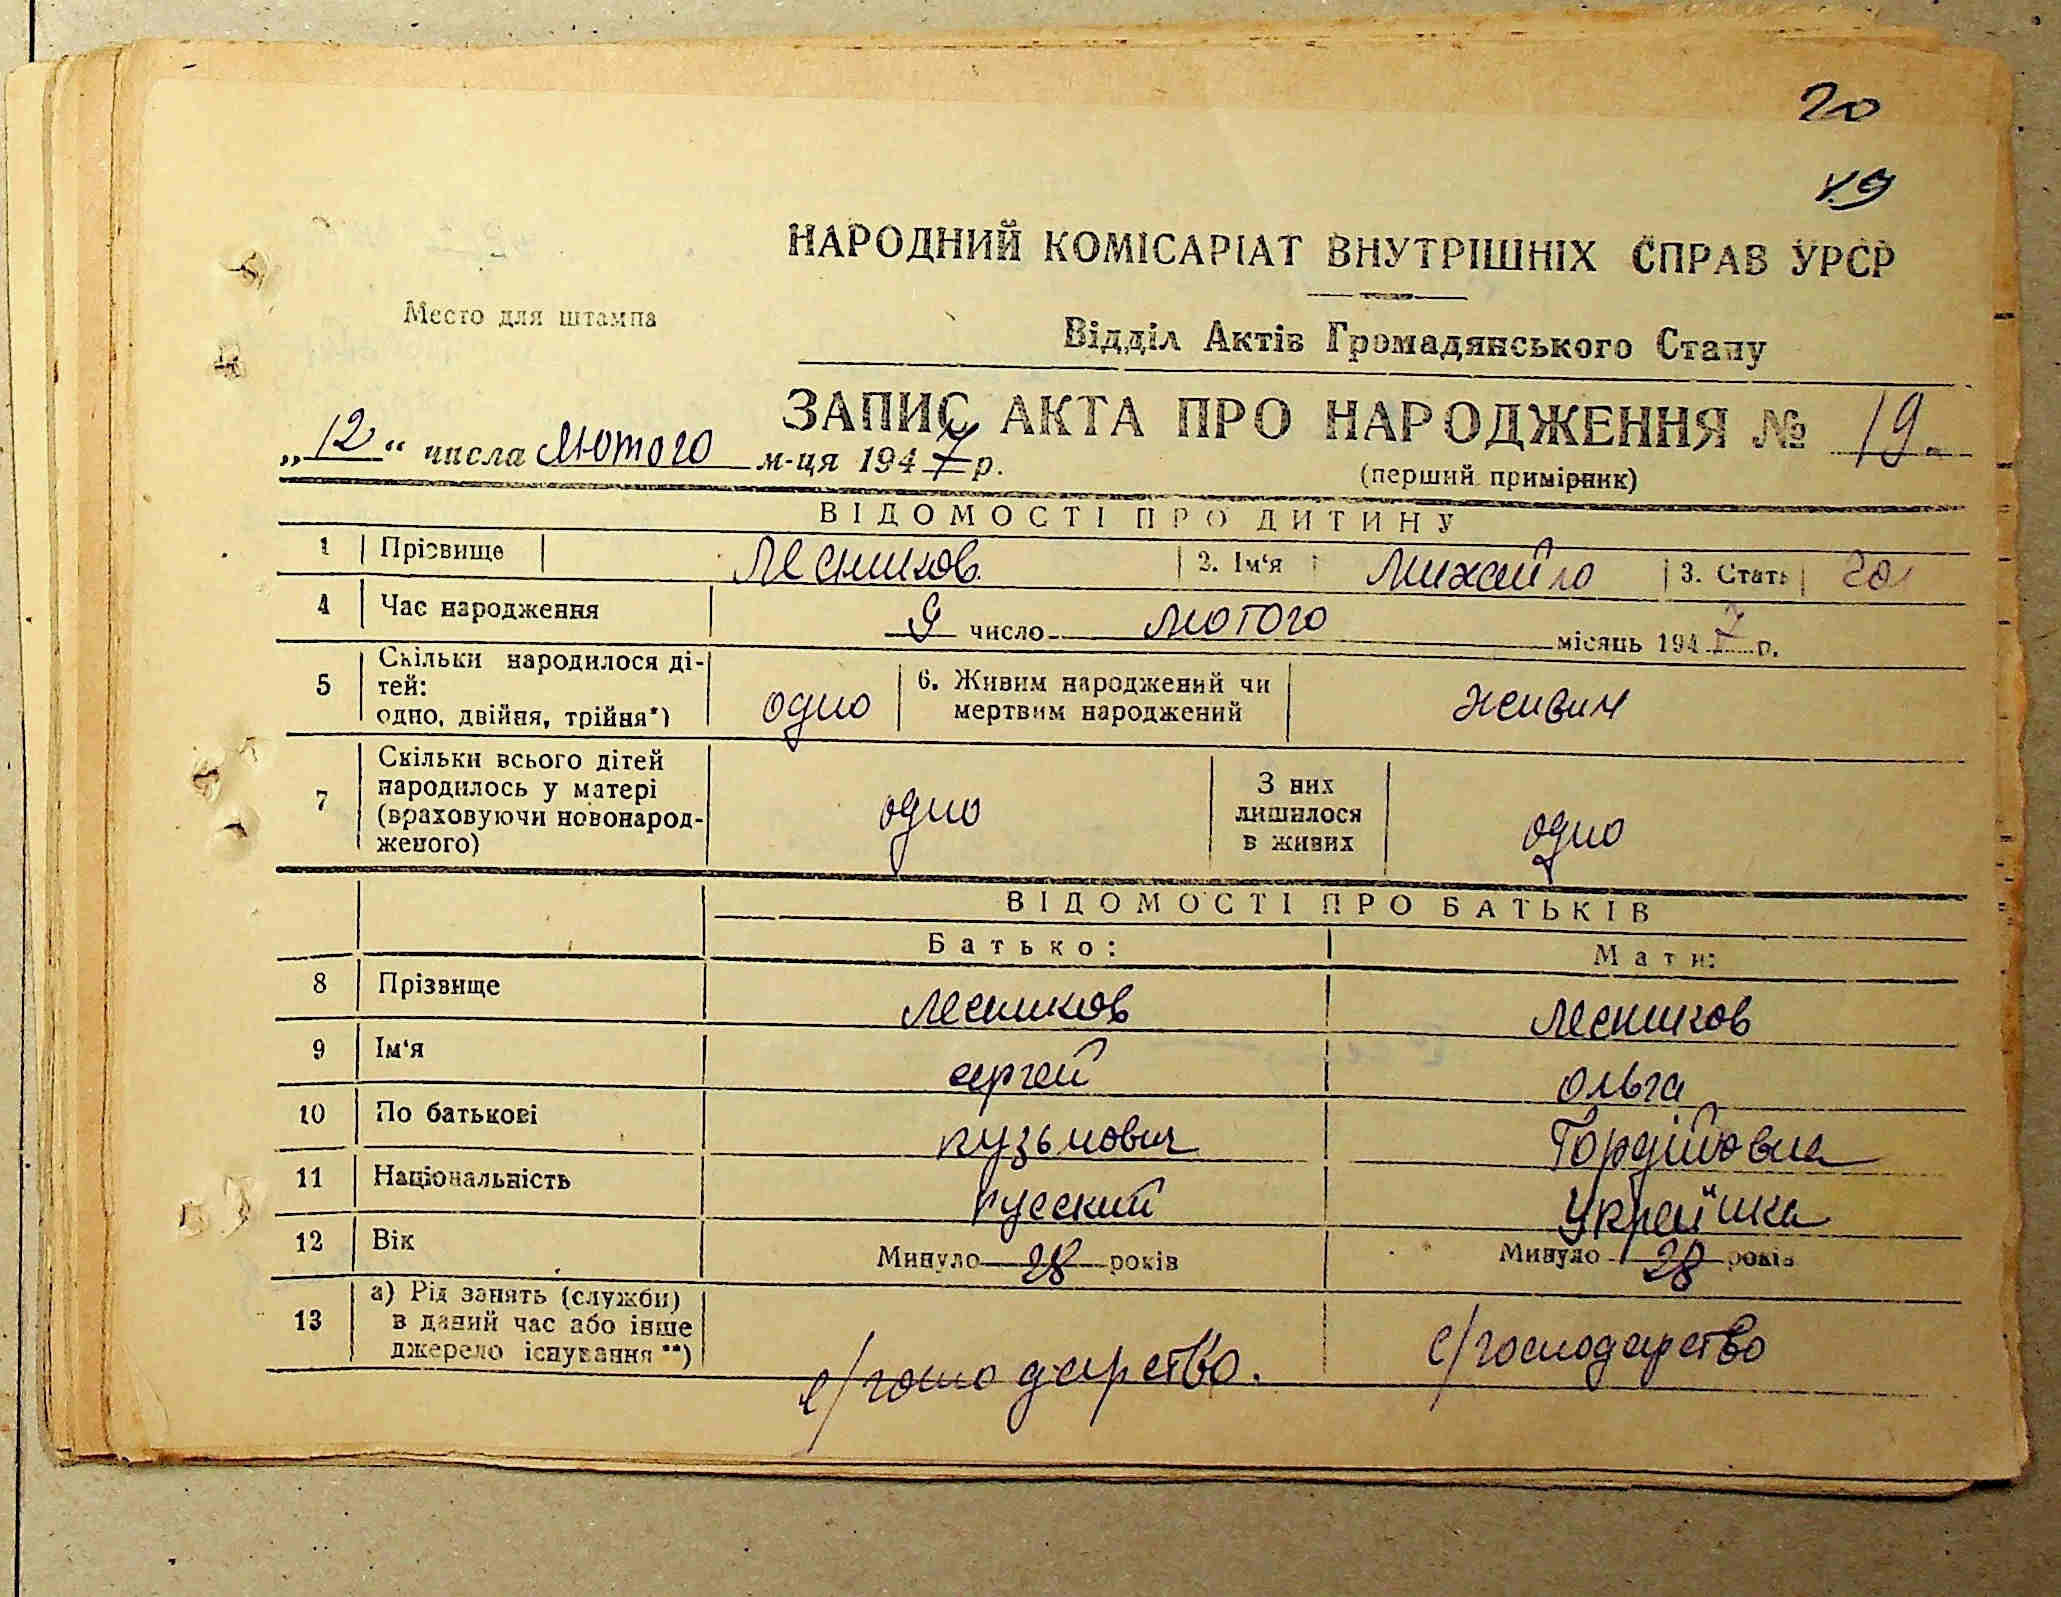 20
19
НАРОДНИЙ КОМІСАРІАТ ВНУТРІШНІХ СПРАВ УРСР
Место для штампа
Відділ Актів Громадянського Стану
ЗАПИС АКТА ПРО НАРОДЖЕННЯ № 19.
„12“ числа Лютого м-ця 1947 р.
(перший примірник)
ВІДОМОСТІ ПРО ДИТИНУ
1 Прізвище Лесников 2. Ім‘я Михайло 3. Стать
4 Час народження 9 число лютого місяць 1947 р.
5 Скільки народилося ді-
тей:
одно, двійня, трійня*)
одно
6. Живим народжений чи
мертвим народжений
живим
7 Скільки всього дітей
народилось у матері
(враховуючи новонарод-
женого)
одно
З них
лишилося
в живих
одно
ВІДОМОСТІ ПРО БАТЬКІВ
Батько: Мати:
8 Прізвище Лесников Лесников
9 Ім‘я Сергей Ольга
10 По батькові Кузьмович Гордіївна
11 Національність русский Українка
12 Вік Минуло 28 років Минуло 28 років
13 а) Рід занять (служби)
в даний час або інше
джерело існування **)
с/господарство. с/господарство